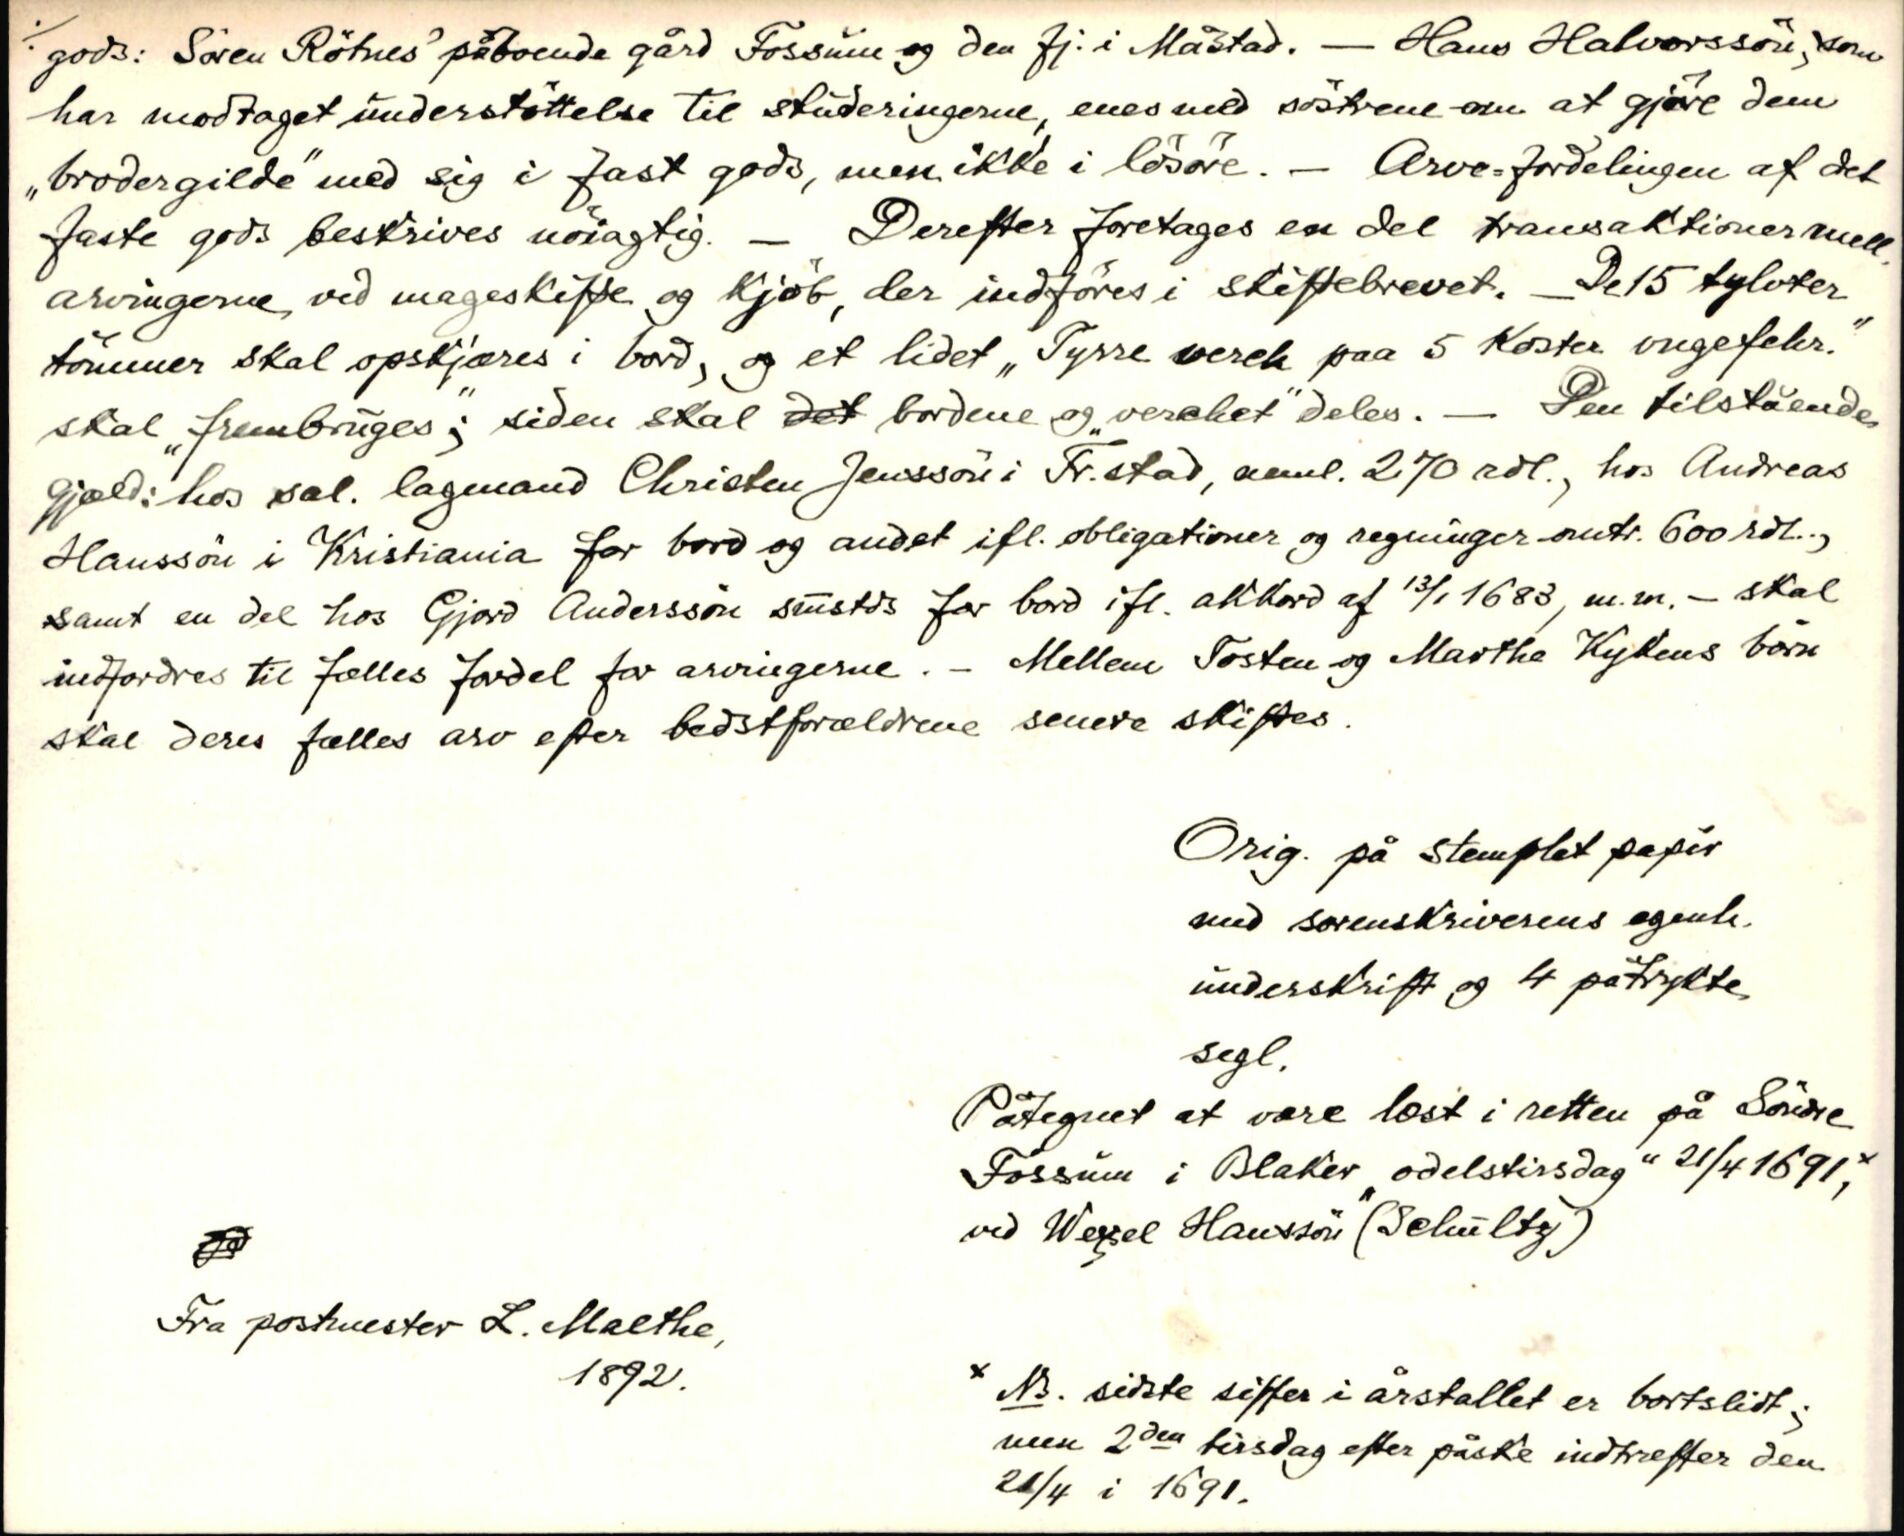 gods: Sören Rötnes' påboende gård Fossum og den fj. i Måstad. — Hans Halvorssön, som
har modtaget understöttelse til studeringerne, enes med söstrene om at gjöre dem
„brodergilde" med sig i fast gods, men ikke i lösöre. — Arve-fordelingen af det
faste gods beskrives nöiagtig. — Derefter foretages en del transaktioner mell.
arvingerne, ved mageskifte og kjöb, der indföres i skiftebrevet. — De 15 tylvter
tömmer skal opskjæres i bord, og et lidet „Tyrre verck paa 5 Koster ongefehr."
skal „frembruges"; siden skal det bordene og „verchet" deles. — Den tilstående
gjæld: hos sal. lagmand Christen Jenssön i Fr.stad, neml. 270 rdl., hos Andreas
Hanssön i Kristiania for bord og andet ifl. obligationer og regninger omtr. 600 rdl.,
samt en del hos Gjord Anderssön smstds for bord ifl. akkord af 13/1 1683, m.m. — skal
indfordres til fælles fordel for arvingerne. — Mellem Tosten og Marthe Kykens börn
skal deres fælles arv efter bedstforældrene senere skiftes.
Orig. på stemplet papir
med sorenskriverens egenh.
underskrift og 4 påtrykte
segl.
Påtegnet at være læst i retten på Söndre
Fossum i Blaker „odelstirsdag" 21/4 1691,×
ved Wexel Hanssön (Schultz)
Fra postmester L. Maethe,
1892.
× NB. sidste siffer i årstallet er bortslidt;
men 2den tirsdag efter påske indtreffer den
21/4 i 1691.